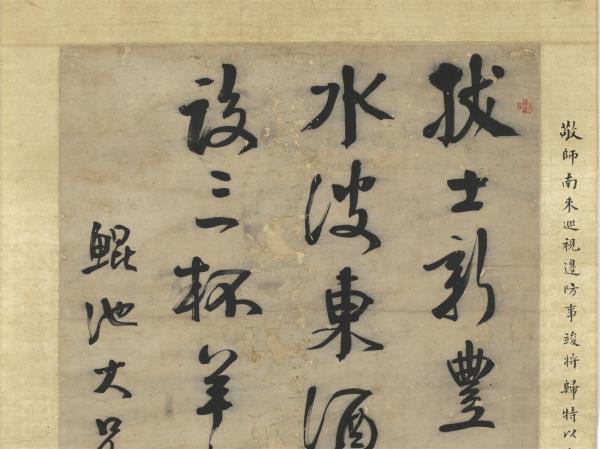 敬師南来巡視邊防事竣將歸特以
拔士新豐
水波東酒
設三杯羊
鯤池大兄